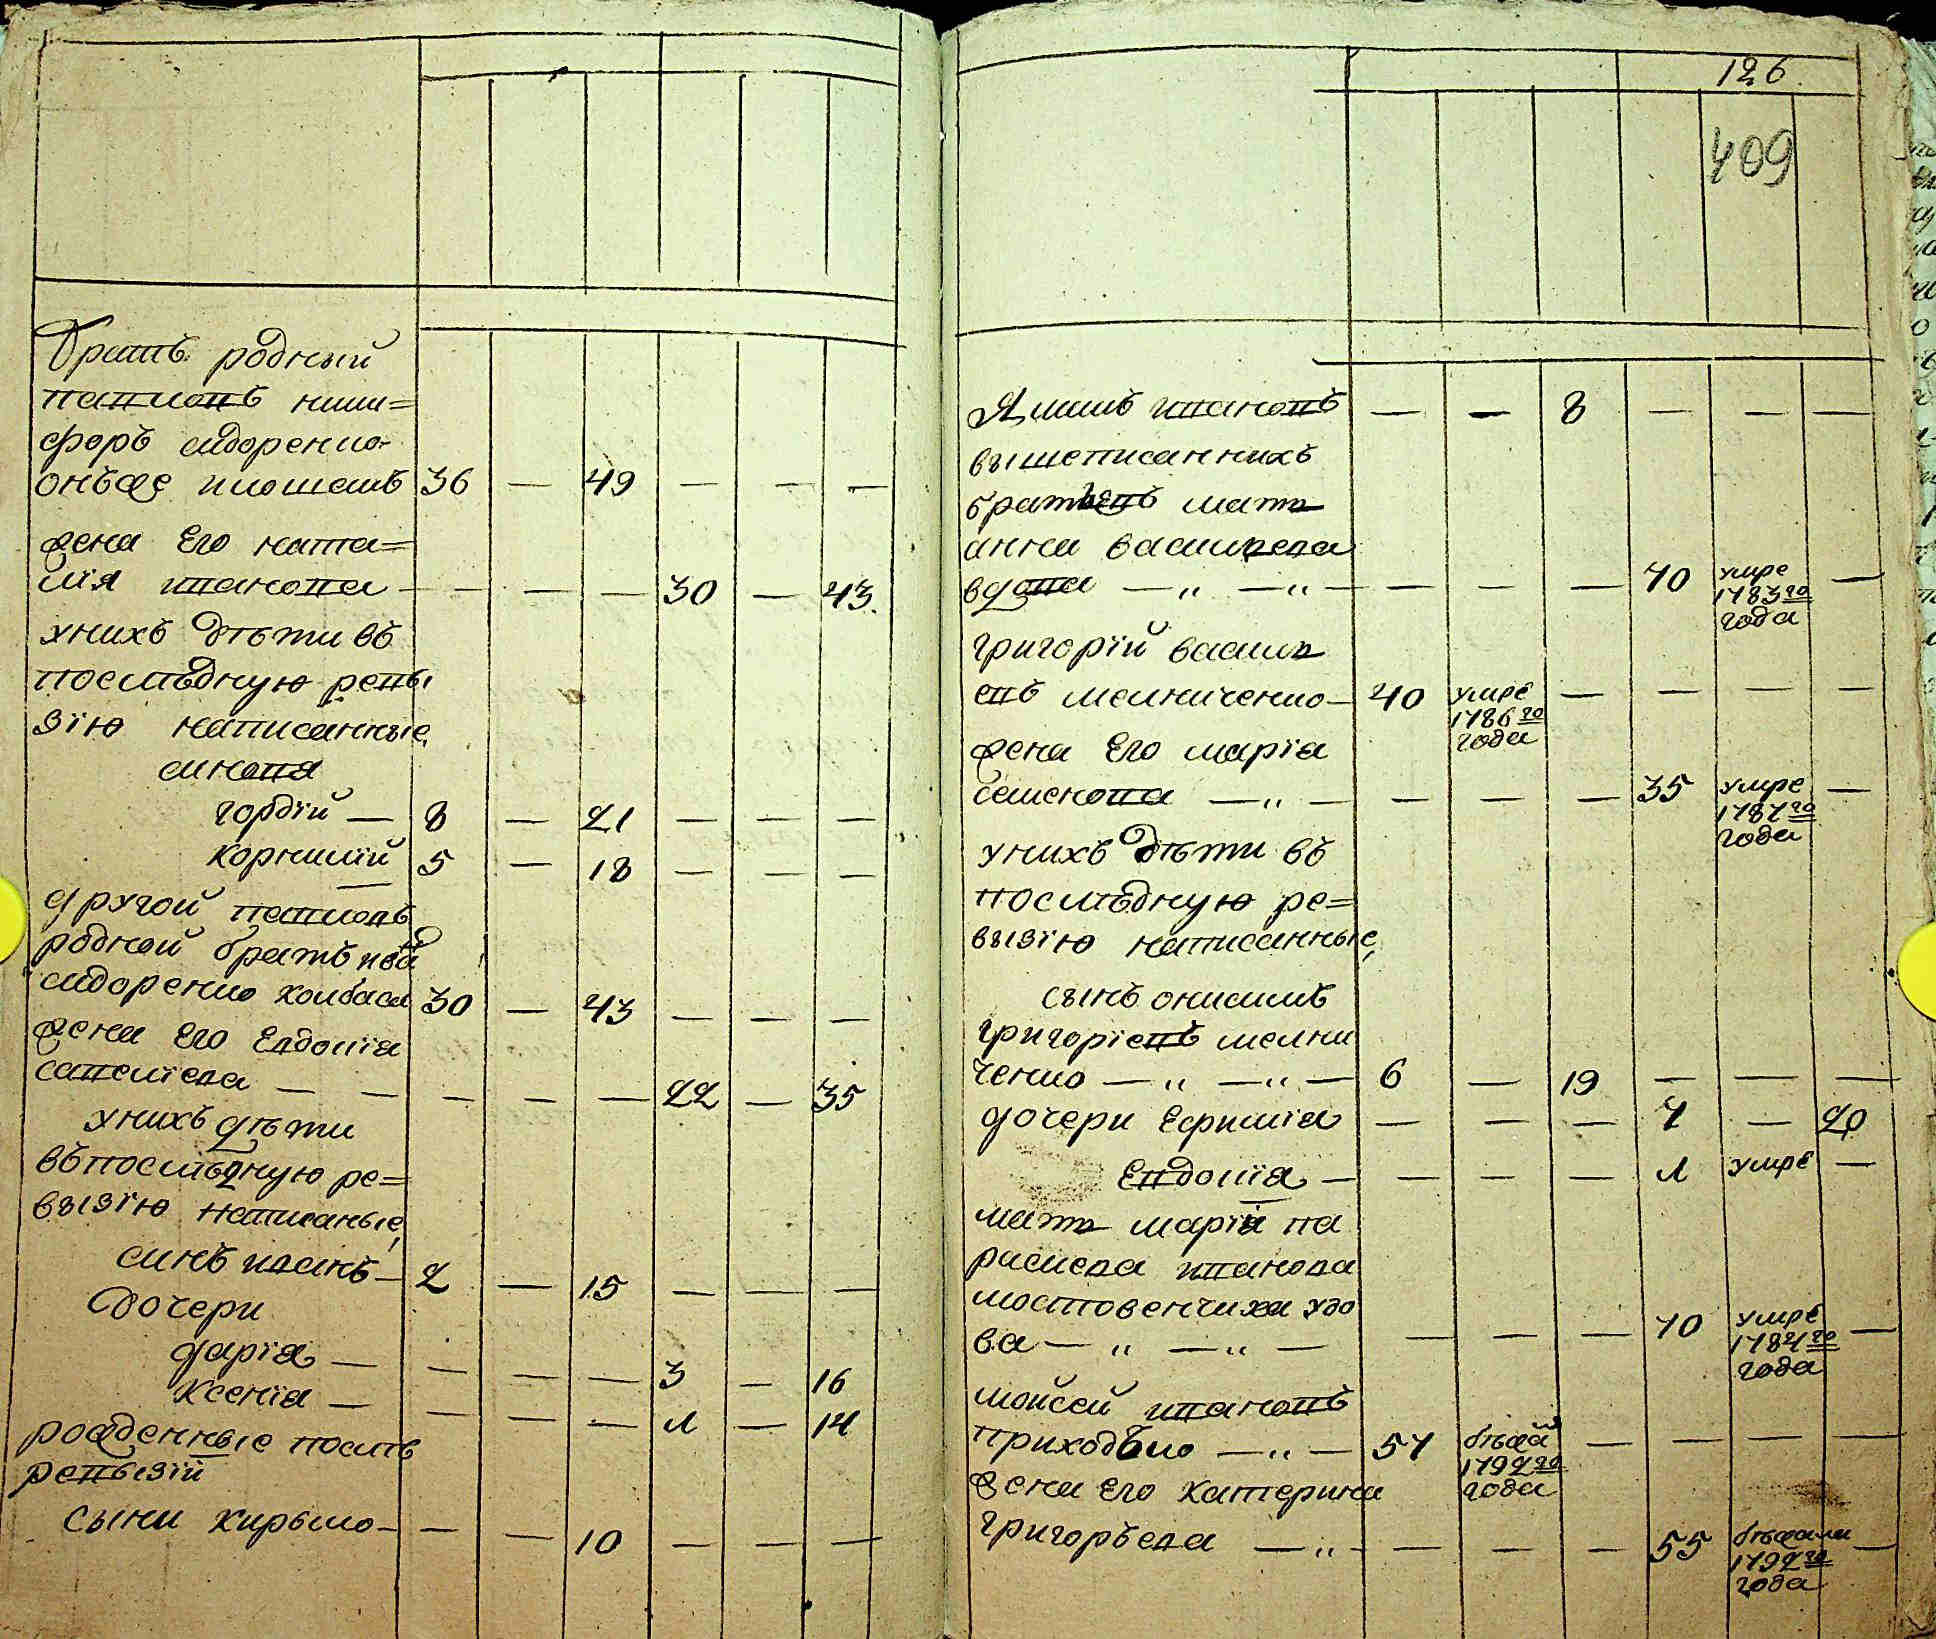 братъ родный
павловъ ники=
форъ сидоренко
онъже илюшенъ 36 — 49 — — —
жена его ната=
лїя иванова — — — — 30 — 43.
унихъ дѣти въ
последную ревы
зїю написанные
синовя
гордїй — 8 — 21 — — —
корнилїй 5 — 18 — — —
другой павловъ
родной братъ
сидоренко колбаса 30 — 43 — — —
жена его Евдокїя
савелїева — — — — — 22 — 35
унихъ дѣти
въпоследную ре=
вызїю написаные
синъ иванъ — 2 — 15 — — —
дочери
дарїя — — — — 3 — 16
ксенїя — — — — 1 — 14
рожденные послѣ
ревызїй
сыни кирыло — — — 10 — — —
126
409
Якимъ ивановъ — — 8 — — —
вышеписанныхъ
братьевъ мать
анна василева
вдова — „ — „ — — — — 70 умре —
1783го
года
григорїй василь
евъ мелниченко — 40 умре — — — —
1786го
года
жена его марїя
семенова — „ — — — — 35 умре —
1787го
года
унихъ дѣти въ
последную ре=
вызїю написанные
сынъ онисимъ
григорїевъ мелни
ченко — „ — „ — 6 — 19 — — —
дочери Ефимїя — — — 7 — 20
Евдокїя — — — — 1 умре —
мать марїй па
раскева иванова
мостовенчиха удо
ва — „ — „ — — — — 70 умре —
1784го
года
мойсей ивановъ
приходько — „ — 57 бѣжа — — — —
1792го
года
жена его катерина
григорьева — „ — — — — 55 бѣжали —
1792го
года